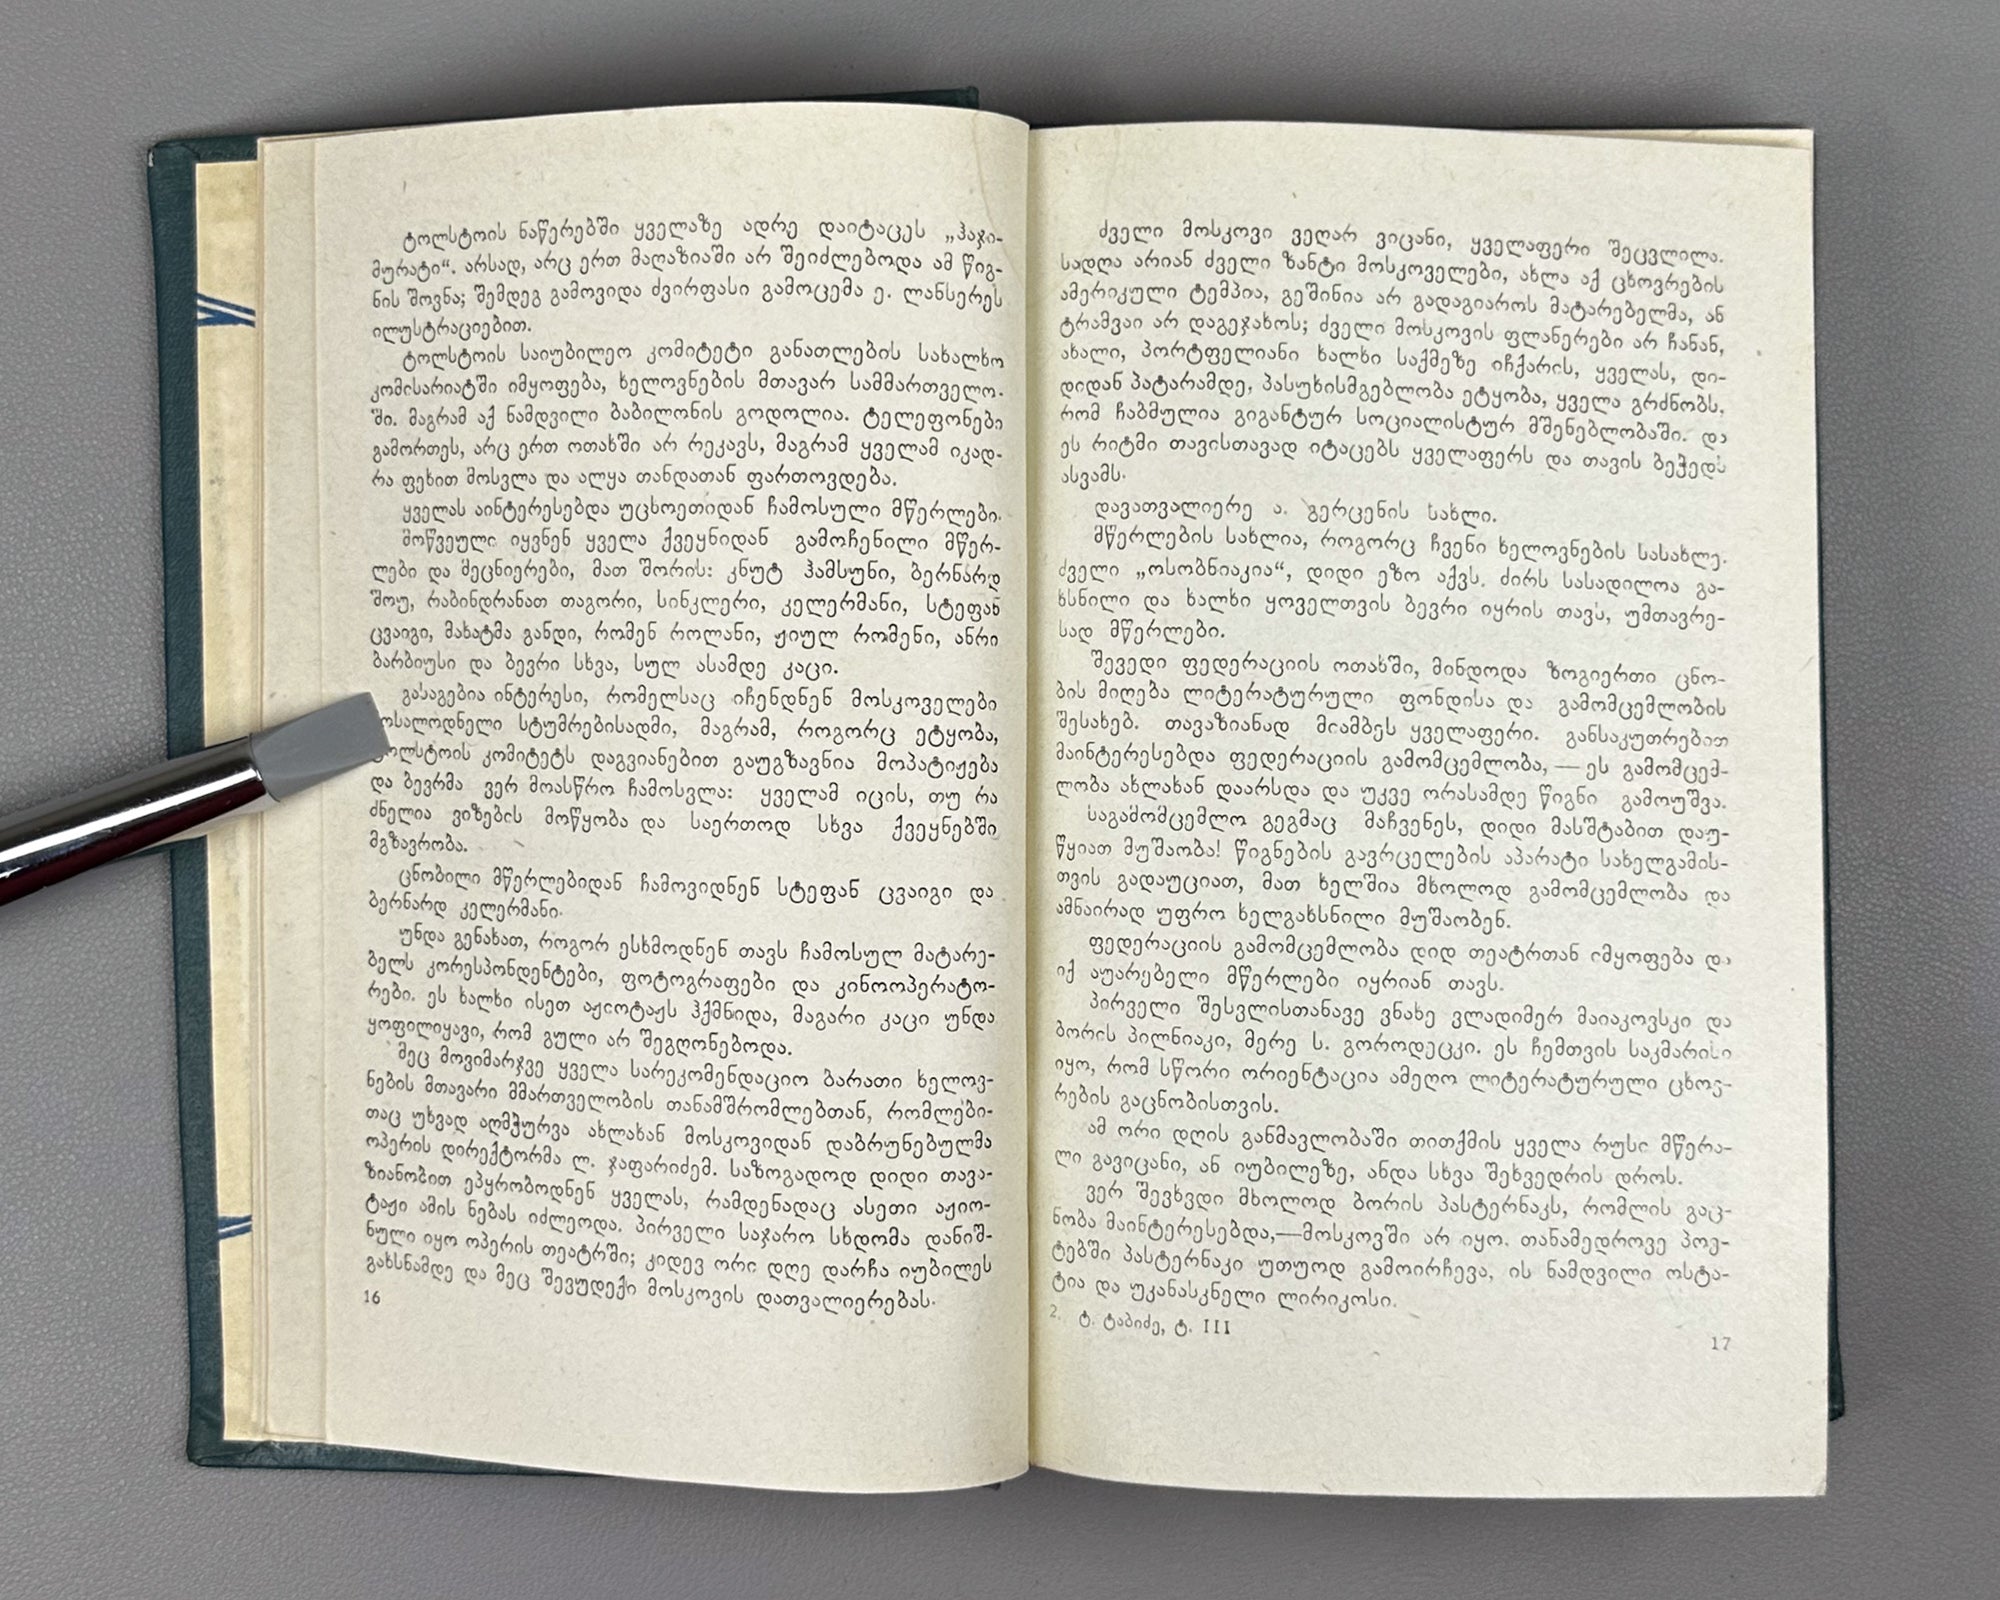 ტოლსტოის ნაწერებში ყველაზე ადრე დაიტაცეს „ჰაჯი-
მურატი“. არსად, არც ერთ მაღაზიაში არ შეიძლებოდა ამ წიგ-
ნის შოვნა; შემდეგ გამოვიდა ძვირფასი გამოცემა ე. ლანსერეს
ილუსტრაციებით.
ტოლსტოის საიუბილეო კომიტეტი განათლების სახალხო
კომისარიატში იმყოფება, ხელოვნების მთავარ სამმართველო-
ში. მაგრამ აქ ნამდვილი ბაბილონის გოდოლია. ტელეფონები
გამორთეს, არც ერთ ოთახში არ რეკავს, მაგრამ ყველამ იკად-
რა ფეხით მოსვლა და ალყა თანდათან ფართოვდება.
ყველას აინტერესებდა უცხოეთიდან ჩამოსული მწერლები.
მოწვეული იყვნენ ყველა ქვეყნიდან გამოჩენილი მწერ-
ლები და მეცნიერები, მათ შორის: კნუტ ჰამსუნი, ბერნარდ
შოუ, რაბინდრანათ თაგორი, სინკლერი, კელერმანი, სტეფან
ცვაიგი, მახატმა განდი, რომენ როლანი, ჟიულ რომენი, ანრი
ბარბიუსი და ბევრი სხვა, სულ ასამდე კაცი.
გასაგებია ინტერესი, რომელსაც იჩენდნენ მოსკოველები
მოსალოდნელი სტუმრებისადმი, მაგრამ, როგორც ეტყობა,
ტოლსტოის კომიტეტს დაგვიანებით გაუგზავნია მოპატიჟება
და ბევრმა ვერ მოასწრო ჩამოსვლა: ყველამ იცის, თუ რა
ძნელია ვიზების მოწყობა და საერთოდ სხვა ქვეყნებში
მგზავრობა.
ცნობილი მწერლებიდან ჩამოვიდნენ სტეფან ცვაიგი და
ბერნარდ კელერმანი.
უნდა გენახათ, როგორ ესხმოდნენ თავს ჩამოსულ მატარე-
ბელს კორესპონდენტები, ფოტოგრაფები და კინოოპერატო-
რები. ეს ხალხი ისეთ აჟიოტაჟს ჰქმნიდა, მაგარი კაცი უნდა
ყოფილიყავი, რომ გული არ შეგღონებოდა.
მეც მოვიმარჯვე ყველა სარეკომენდაციო ბარათი ხელოვ-
ნების მთავარი მმართველობის თანამშრომლებთან, რომლები-
თაც უხვად აღმჭურვა ახლახან მოსკოვიდან დაბრუნებულმა
ოპერის დირექტორმა ლ. ჯაფარიძემ. საზოგადოდ დიდი თავა-
ზიანობით ეპყრობოდნენ ყველას, რამდენადაც ასეთი აჟიო-
ტაჟი ამის ნებას იძლეოდა. პირველი საჯარო სხდომა დანიშ-
ნული იყო ოპერის თეატრში; კიდევ ორი დღე დარჩა იუბილეს
გახსნამდე და მეც შევუდექი მოსკოვის დათვალიერებას.
16
ძველი მოსკოვი ვეღარ ვიცანი, ყველაფერი შეცვლილა.
სადღა არიან ძველი ზანტი მოსკოველები, ახლა აქ ცხოვრების
ამერიკული ტემპია, გეშინია არ გადაგიაროს მატარებელმა, ან
ტრამვაი არ დაგეჯახოს; ძველი მოსკოვის ფლანერები არ ჩანან,
ახალი, პორტფელიანი ხალხი საქმეზე იჩქარის, ყველას, დი-
დიდან პატარამდე, პასუხისმგებლობა ეტყობა, ყველა გრძნობს,
რომ ჩაბმულია გიგანტურ სოციალისტურ მშენებლობაში. და
ეს რიტმი თავისთავად იტაცებს ყველაფერს და თავის ბეჭედს
ასვამს.
დავათვალიერე ა. გერცენის სახლი.
მწერლების სახლია, როგორც ჩვენი ხელოვნების სასახლე.
ძველი „ოსობნიაკია“, დიდი ეზო აქვს. ძირს სასადილოა გა-
ხსნილი და ხალხი ყოველთვის ბევრი იყრის თავს, უმთავრე-
სად მწერლები.
შევედი ფედერაციის ოთახში, მინდოდა ზოგიერთი ცნო-
ბის მიღება ლიტერატურული ფონდისა და გამომცემლობის
შესახებ. თავაზიანად მიამბეს ყველაფერი. განსაკუთრებით
მაინტერესებდა ფედერაციის გამომცემლობა, — ეს გამომცემ-
ლობა ახლახან დაარსდა და უკვე ორასამდე წიგნი გამოუშვა.
საგამომცემლო გეგმაც მაჩვენეს, დიდი მასშტაბით დაუ-
წყიათ მუშაობა! წიგნების გავრცელების აპარატი სახელგამის-
თვის გადაუციათ, მათ ხელშია მხოლოდ გამომცემლობა და
ამნაირად უფრო ხელგახსნილი მუშაობენ.
ფედერაციის გამომცემლობა დიდ თეატრთან იმყოფება და
იქ აუარებელი მწერლები იყრიან თავს.
პირველი შესვლისთანავე ვნახე ვლადიმერ მაიაკოვსკი და
ბორის პილნიაკი, მერე ს. გოროდეცკი. ეს ჩემთვის საკმარისი
იყო, რომ სწორი ორიენტაცია ამეღო ლიტერატურული ცხოვ-
რების გაცნობისთვის.
ამ ორი დღის განმავლობაში თითქმის ყველა რუსი მწერა-
ლი გავიცანი, ან იუბილეზე, ანდა სხვა შეხვედრის დროს.
ვერ შევხვდი მხოლოდ ბორის პასტერნაკს, რომლის გაც-
ნობა მაინტერესებდა,—მოსკოვში არ იყო. თანამედროვე პოე-
ტებში პასტერნაკი უთუოდ გამოირჩევა, ის ნამდვილი ოსტა-
ტია და უკანასკნელი ლირიკოსი.
2. ტ. ტაბიძე, ტ. III
17